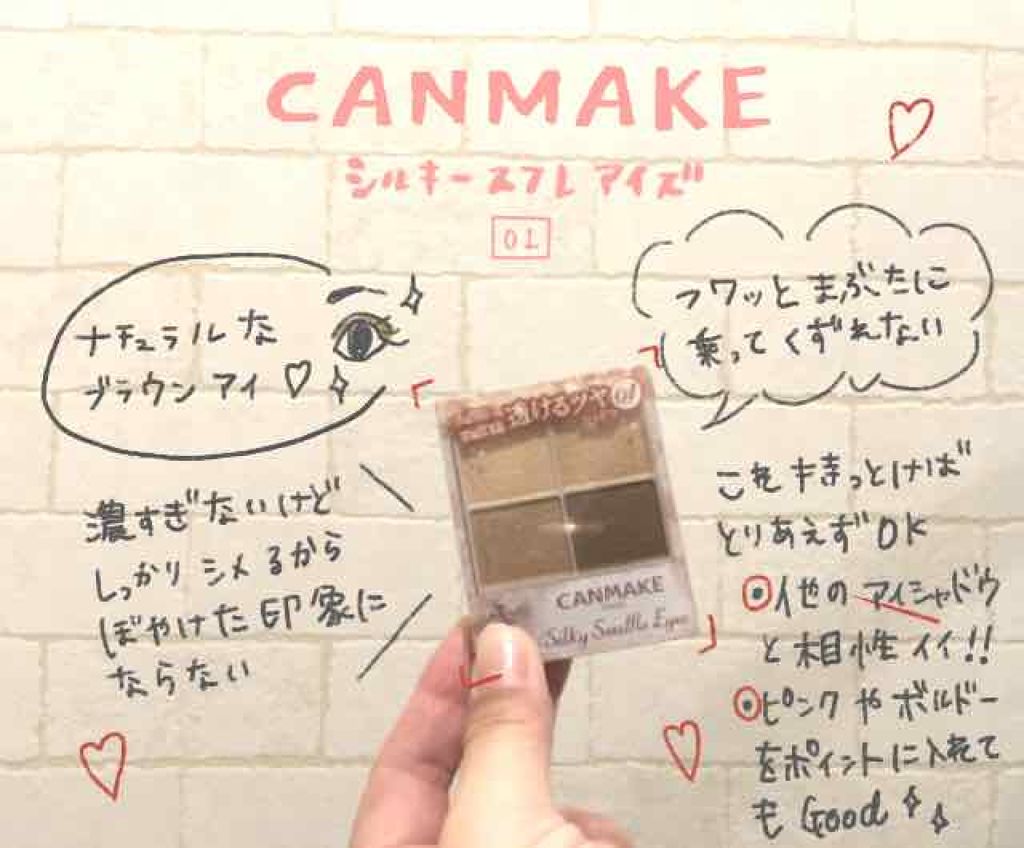 CANMAKE
シルキースフレ アイズ
01
ナチュラルな
ブラウン アイ ♡
フワッと まぶたに
乗って くずれない
透けるツヤ 01
CANMAKE
Silky Souffle Eyes
濃すぎないけど
しっかり シメるから
ぼやけた 印象に
ならない
これ 持っとけば
とりあえず OK
他の アイシャドウ
と 相性 イイ!!
ピンク や ボルドー
をポイントに入れて
も Good